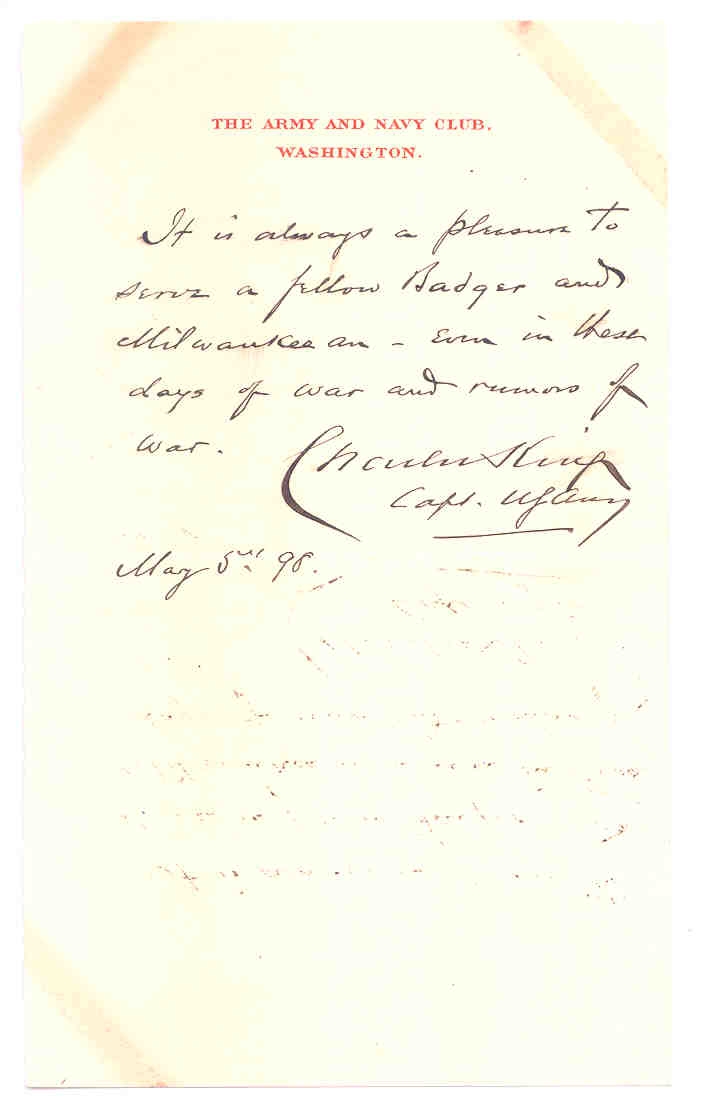 THE ARMY AND NAVY CLUB.
WASHINGTON.
It is always a pleasure to
serve a fellow Badger and
Milwaukeean - Even in these
days of war and rumors of
war.
Charles King
Capt. US Army
May 98.